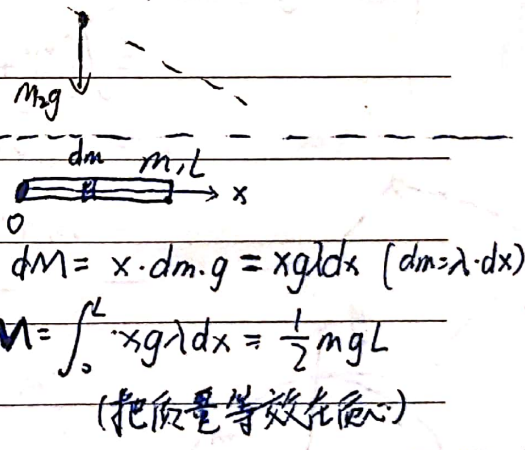 m₂g
dm m, L
x
0
dM = x·dm·g = xgλdx (dm=λ·dx)
M = ∫₀ᴸ xgλdx = 1/2 mgL
(把质量等效在质心)